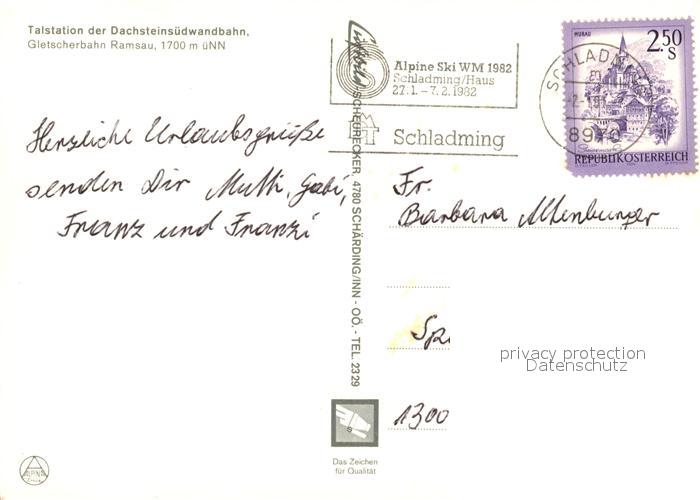 Talstation der Dachsteinsüdwandbahn,
Gletscherbahn Ramsau, 1700 m üNN
Herzliche Urlaubsgrüße
senden Dir Mutti, Gabi,
Franz und Franzi
ALPINA
SCHEURECKER, 4780 SCHÄRDING/INN - OÖ. - TEL. 23 29
Das Zeichen
für Qualität
Alpine Ski WM 1982
Schladming/Haus
27.1. – 7.2. 1982
Schladming
SCHLADMING
8970
MURAU
2.50
S
REPUBLIK ÖSTERREICH
Fr.
Barbara Altenburger
1300
privacy protection
Datenschutz